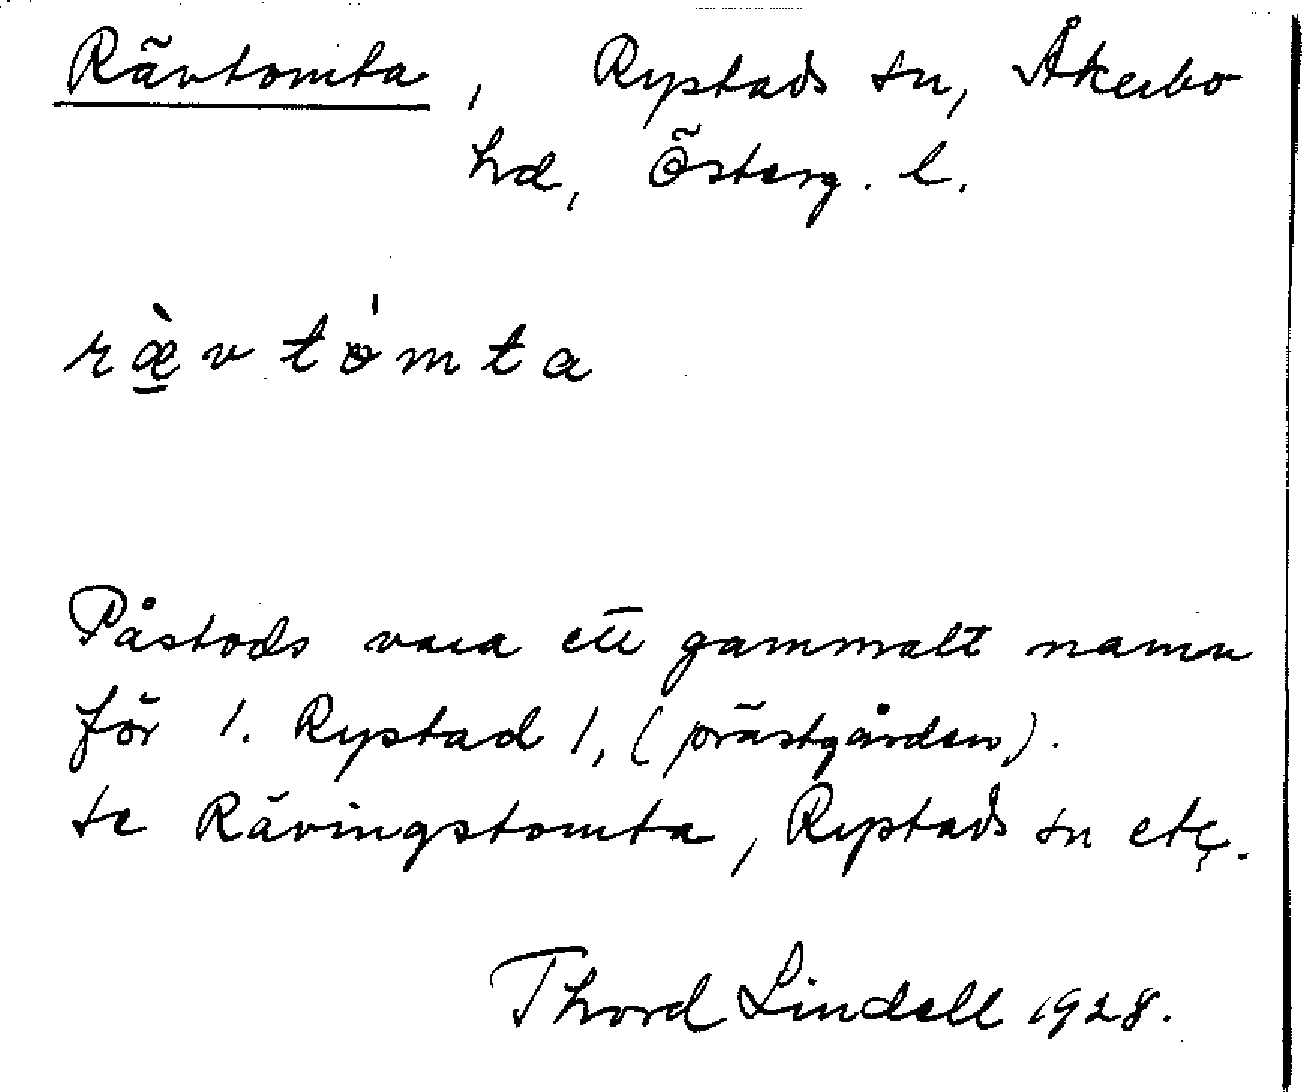 Rävtomta, Rystads sn, Åkerbo
hd, Österg. l.
ræ̀vtómta
Påstods vara ett gammalt namn
för 1. Rystad 1, (prästgården).
se Rävingstomta, Rystads sn etc.
Thord Lindell 1928.